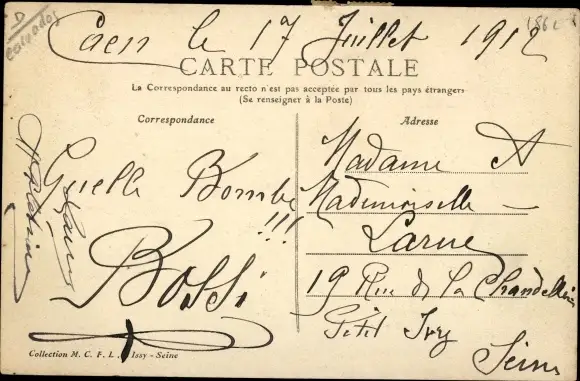 D
Calvados
186
Caen le 17 Juillet 1912
CARTE POSTALE
La Correspondance au recto n'est pas acceptée par tous les pays étrangers
(Se renseigner à la Poste)
Correspondance
Quelle Bombe
!!!
Bossi
Collection M. C. F. L. Issy - Seine
Adresse
Madame A
Mademoiselle —
Larue
19 Rue de la
Petit Ivry
Seine